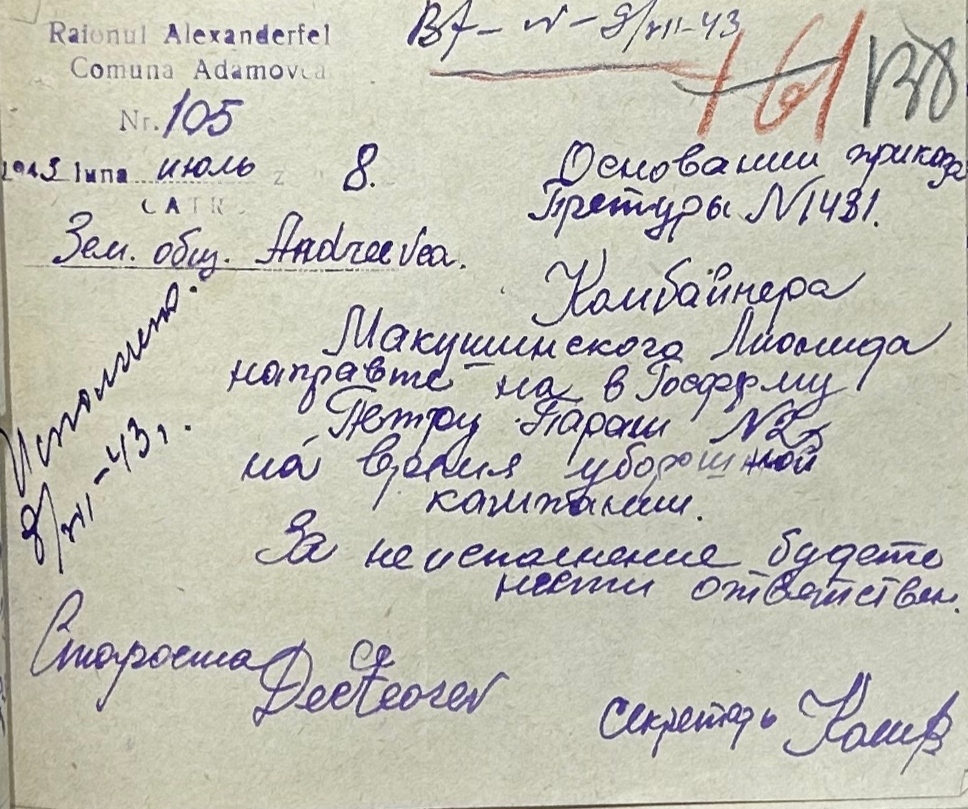 Raionul Alexanderfel
Comuna Adamovca
Nr. 105
1943 luna июль 8.
CATR
Зем. общ. Andreevca.
Вх- № - 8/VII-43
161 138
Основании приказа
Претуры №1431.
Комбайнера
Макушинского Лионида
направте на в Госферму
Петру Параш №2х
на время уборошной
кампании.
За неисполнение будете
нести ответствен.
Исполнено.
8/VII-43г.
Староста
Секретарь